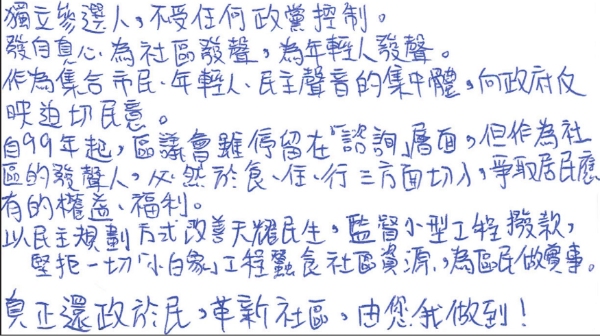 獨立參選人，不受任何政黨控制。
發自真心、為社區發聲，為年輕人發聲。
作為集合市民、年輕人、民主聲音的集中體，向政府反
映迫切民意。
自99年起，區議會雖停留在「諮詢」層面，但作為社
區的發聲人，必然於食、住、行三方面切入，爭取居民應
有的權益、福利。
以民主規劃方式改善天耀民生，監督小型工程撥款，
堅拒一切「小白象」工程蠶食社區資源，為區民做實事。
真正還政於民，革新社區，由您我做到！